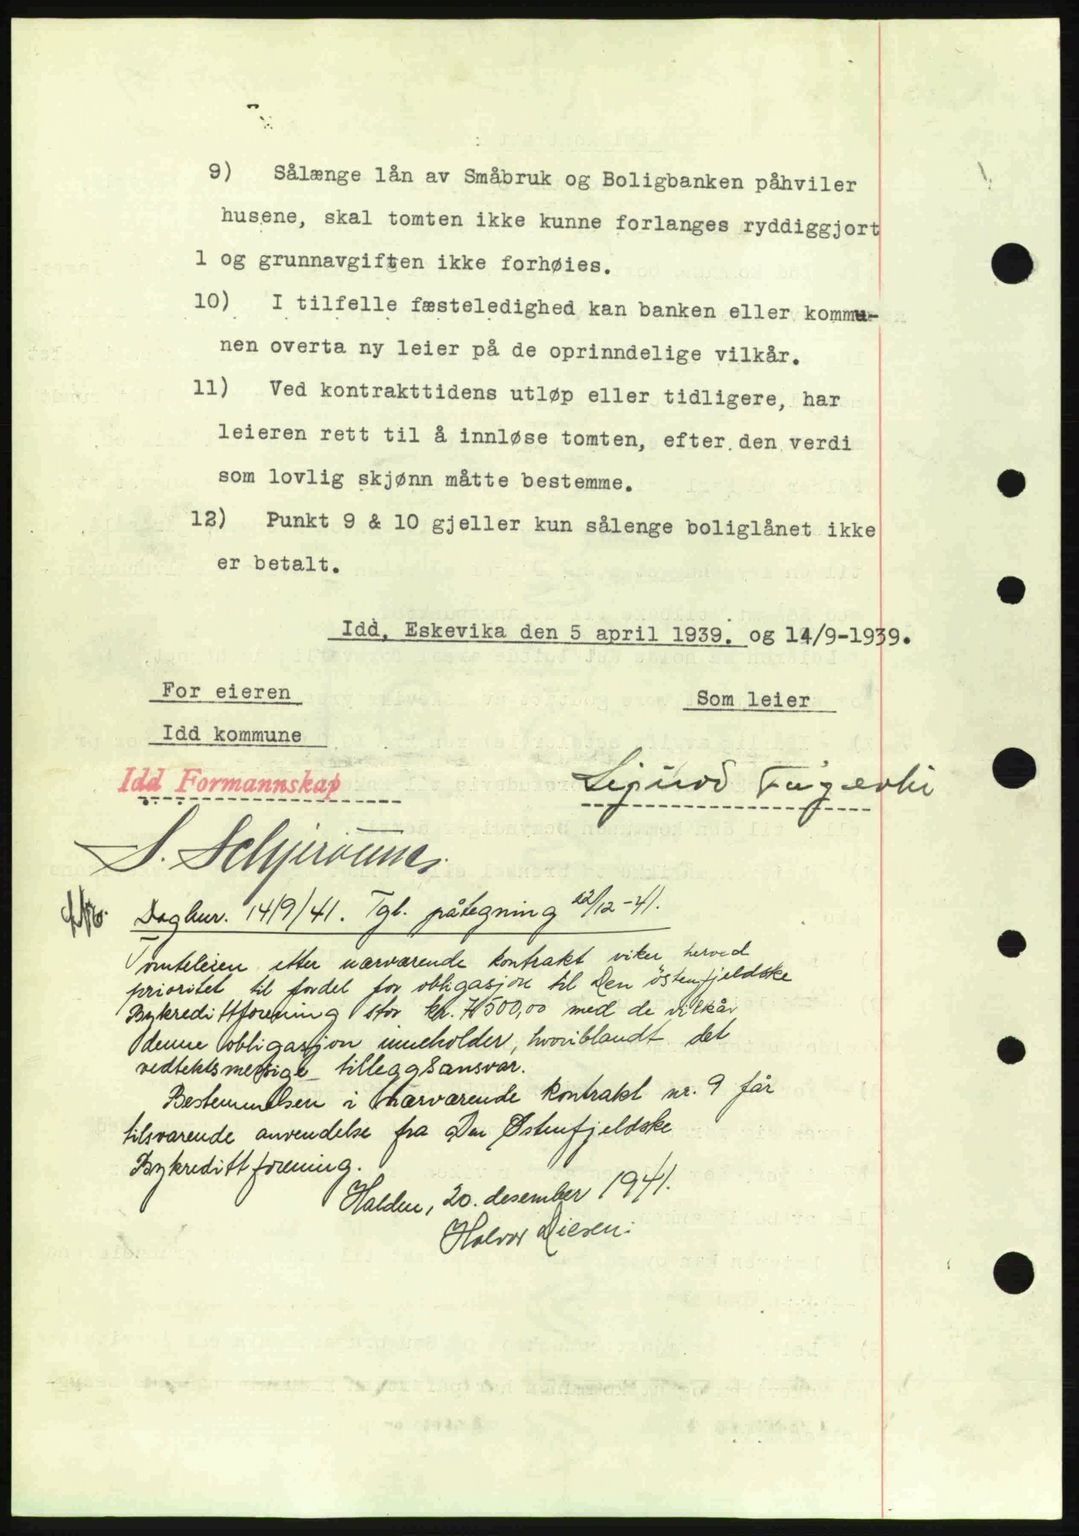 9) Sålænge lån av Småbruk og Boligbanken påhviler
husene, skal tomten ikke kunne forlanges ryddiggjort
1 og grunnavgiften ikke forhøies.
10) I tilfelle fæsteledighed kan banken eller kommu-
nen overta ny leier på de oprinndelige vilkår.
11) Ved kontrakttidens utløp eller tidligere, har
leieren rett til å innløse tomten, efter den verdi
som lovlig skjønn måtte bestemme.
12) Punkt 9 & 10 gjeller kun sålenge boliglånet ikke
er betalt.
Idd, Eskevika den 5 april 1939. og 14/9-1939.
For eieren
Som leier
Idd kommune
Idd Formannskap
Sigurd
S.
Dagbnr. 14/9/41. Tgl. påtegning 22/12-41.
Tomteleien etter nærværende kontrakt viker herved
prioritet til fordel for obligasjon til Den østenfjeldske
Bykredittforening stor kr. 7500,00 med de vilkår
denne obligasjon inneholder, hvoriblandt det
vedtektsmessige tilleggsansvar.
Bestemmelsen i nærværende kontrakt nr. 9 får
tilsvarende anvendelse fra Den Østenfjeldske
Bykredittforening.
Halden, 20. desember 1941.
Halvor